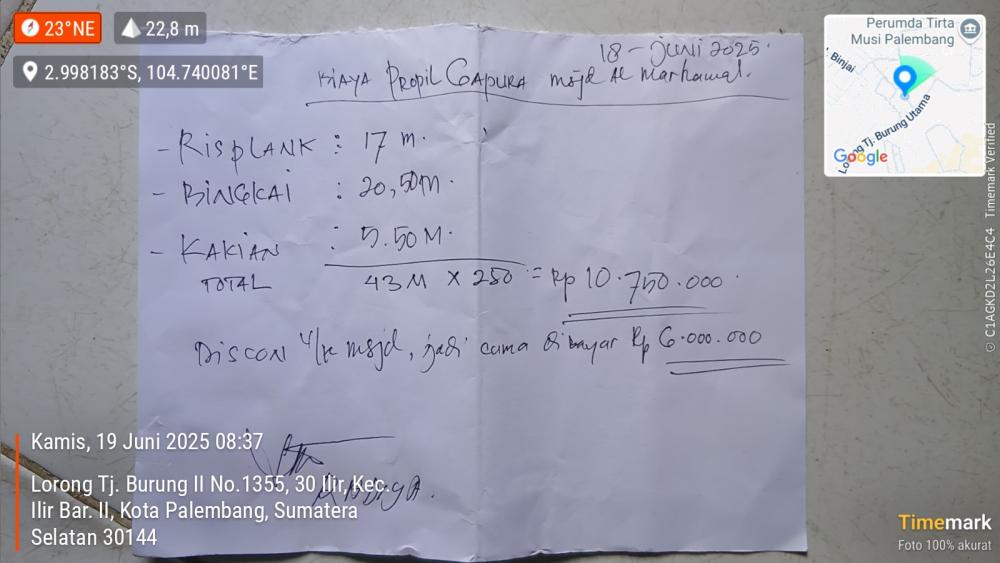 23°NE
22,8 m
2.998183°S, 104.740081°E
Perumda Tirta
Musi Palembang
Binjai
Lorong Tj. Burung Utama
Google
18 - Juni 2025.
BIAYA PROPIL GAPURA msjd Al Marhamah.
- RISPLANK : 17 m.
- BINGKAI : 20,50M.
- KAKIAN : 5.50 M.
TOTAL 43 M X 250 = Rp 10.750.000
DISCON u/k msjd, jadi cuma dibayar Rp 6.000.000
Kamis, 19 Juni 2025 08:37
Lorong Tj. Burung II No.1355, 30 Ilir, Kec.
Ilir Bar. II, Kota Palembang, Sumatera
Selatan 30144
Timemark
Foto 100% akurat
© C1AGKD2L26E4C4 Timemark Verified